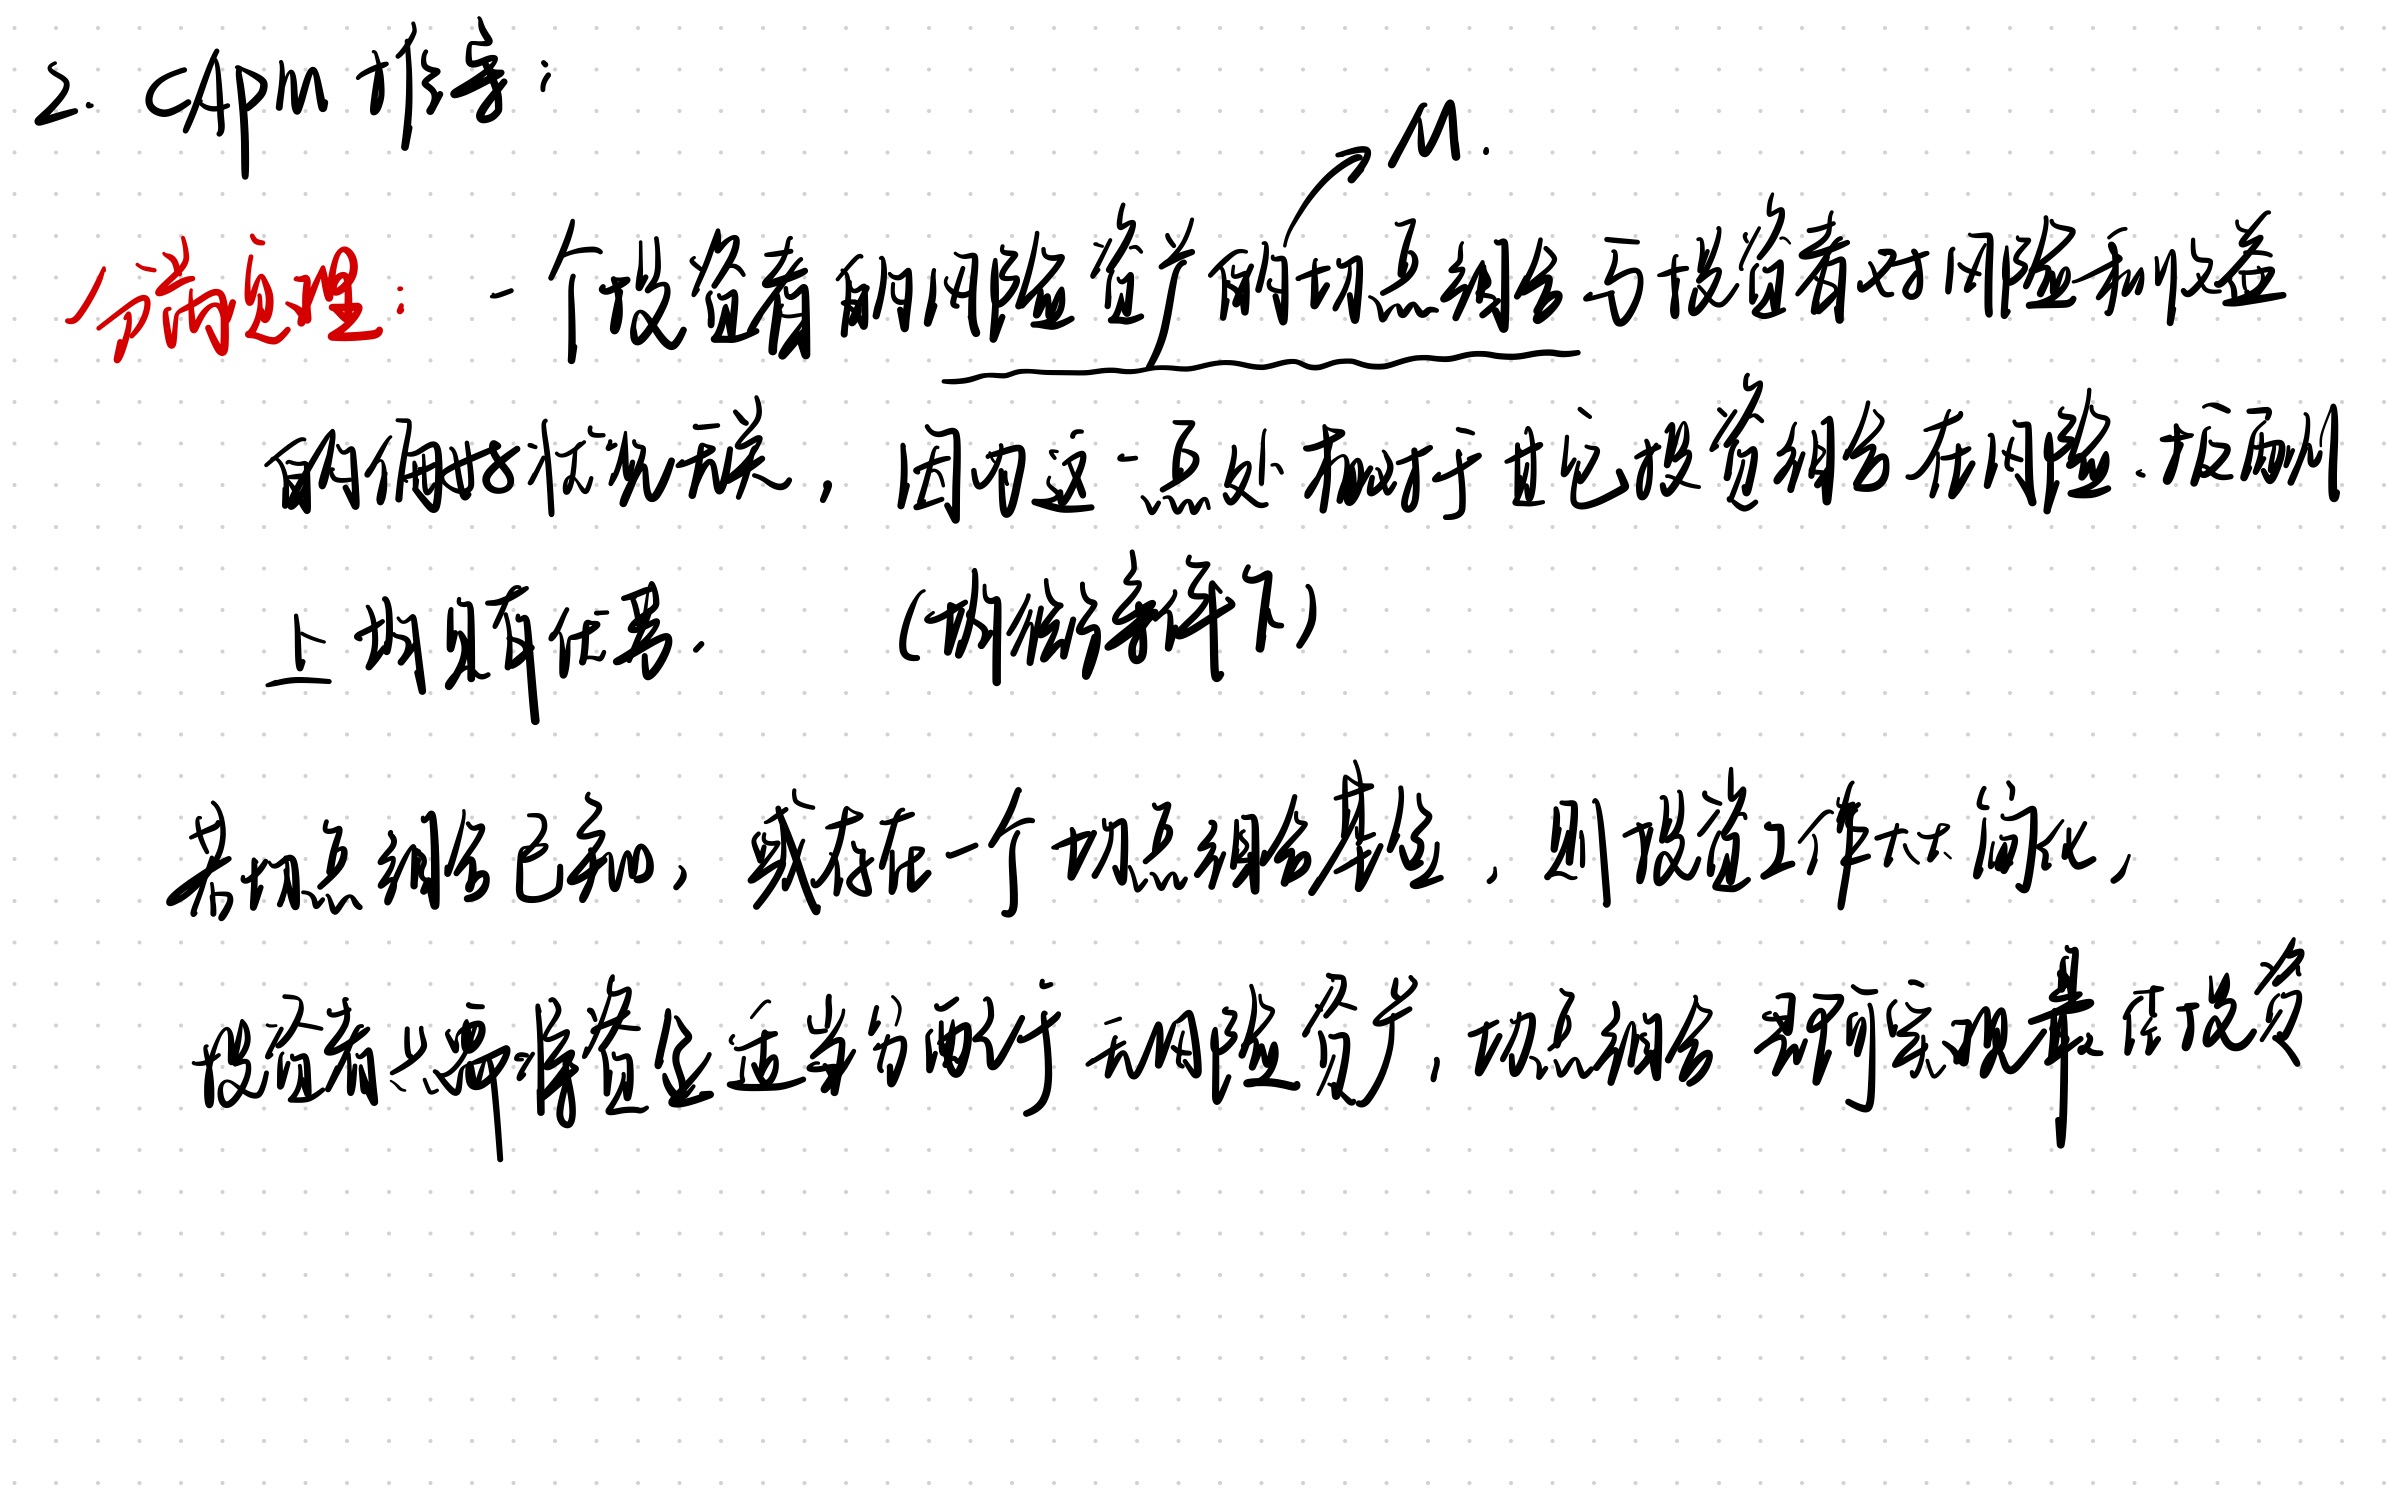 2. CAPM 推导：
M.
分离定理： 一个投资者的风险资产的切点组合与投资者对风险和收益
的偏好状况无关，因为这一点处相对于其它投资组合在风险、
上均具有优势. (斜率)
若切点组合已知，或存在一个切点组合基金，则投资工作大大简化，
投资者只要将资金适当分配于无风险资产，切点组合 即可实现最佳投资